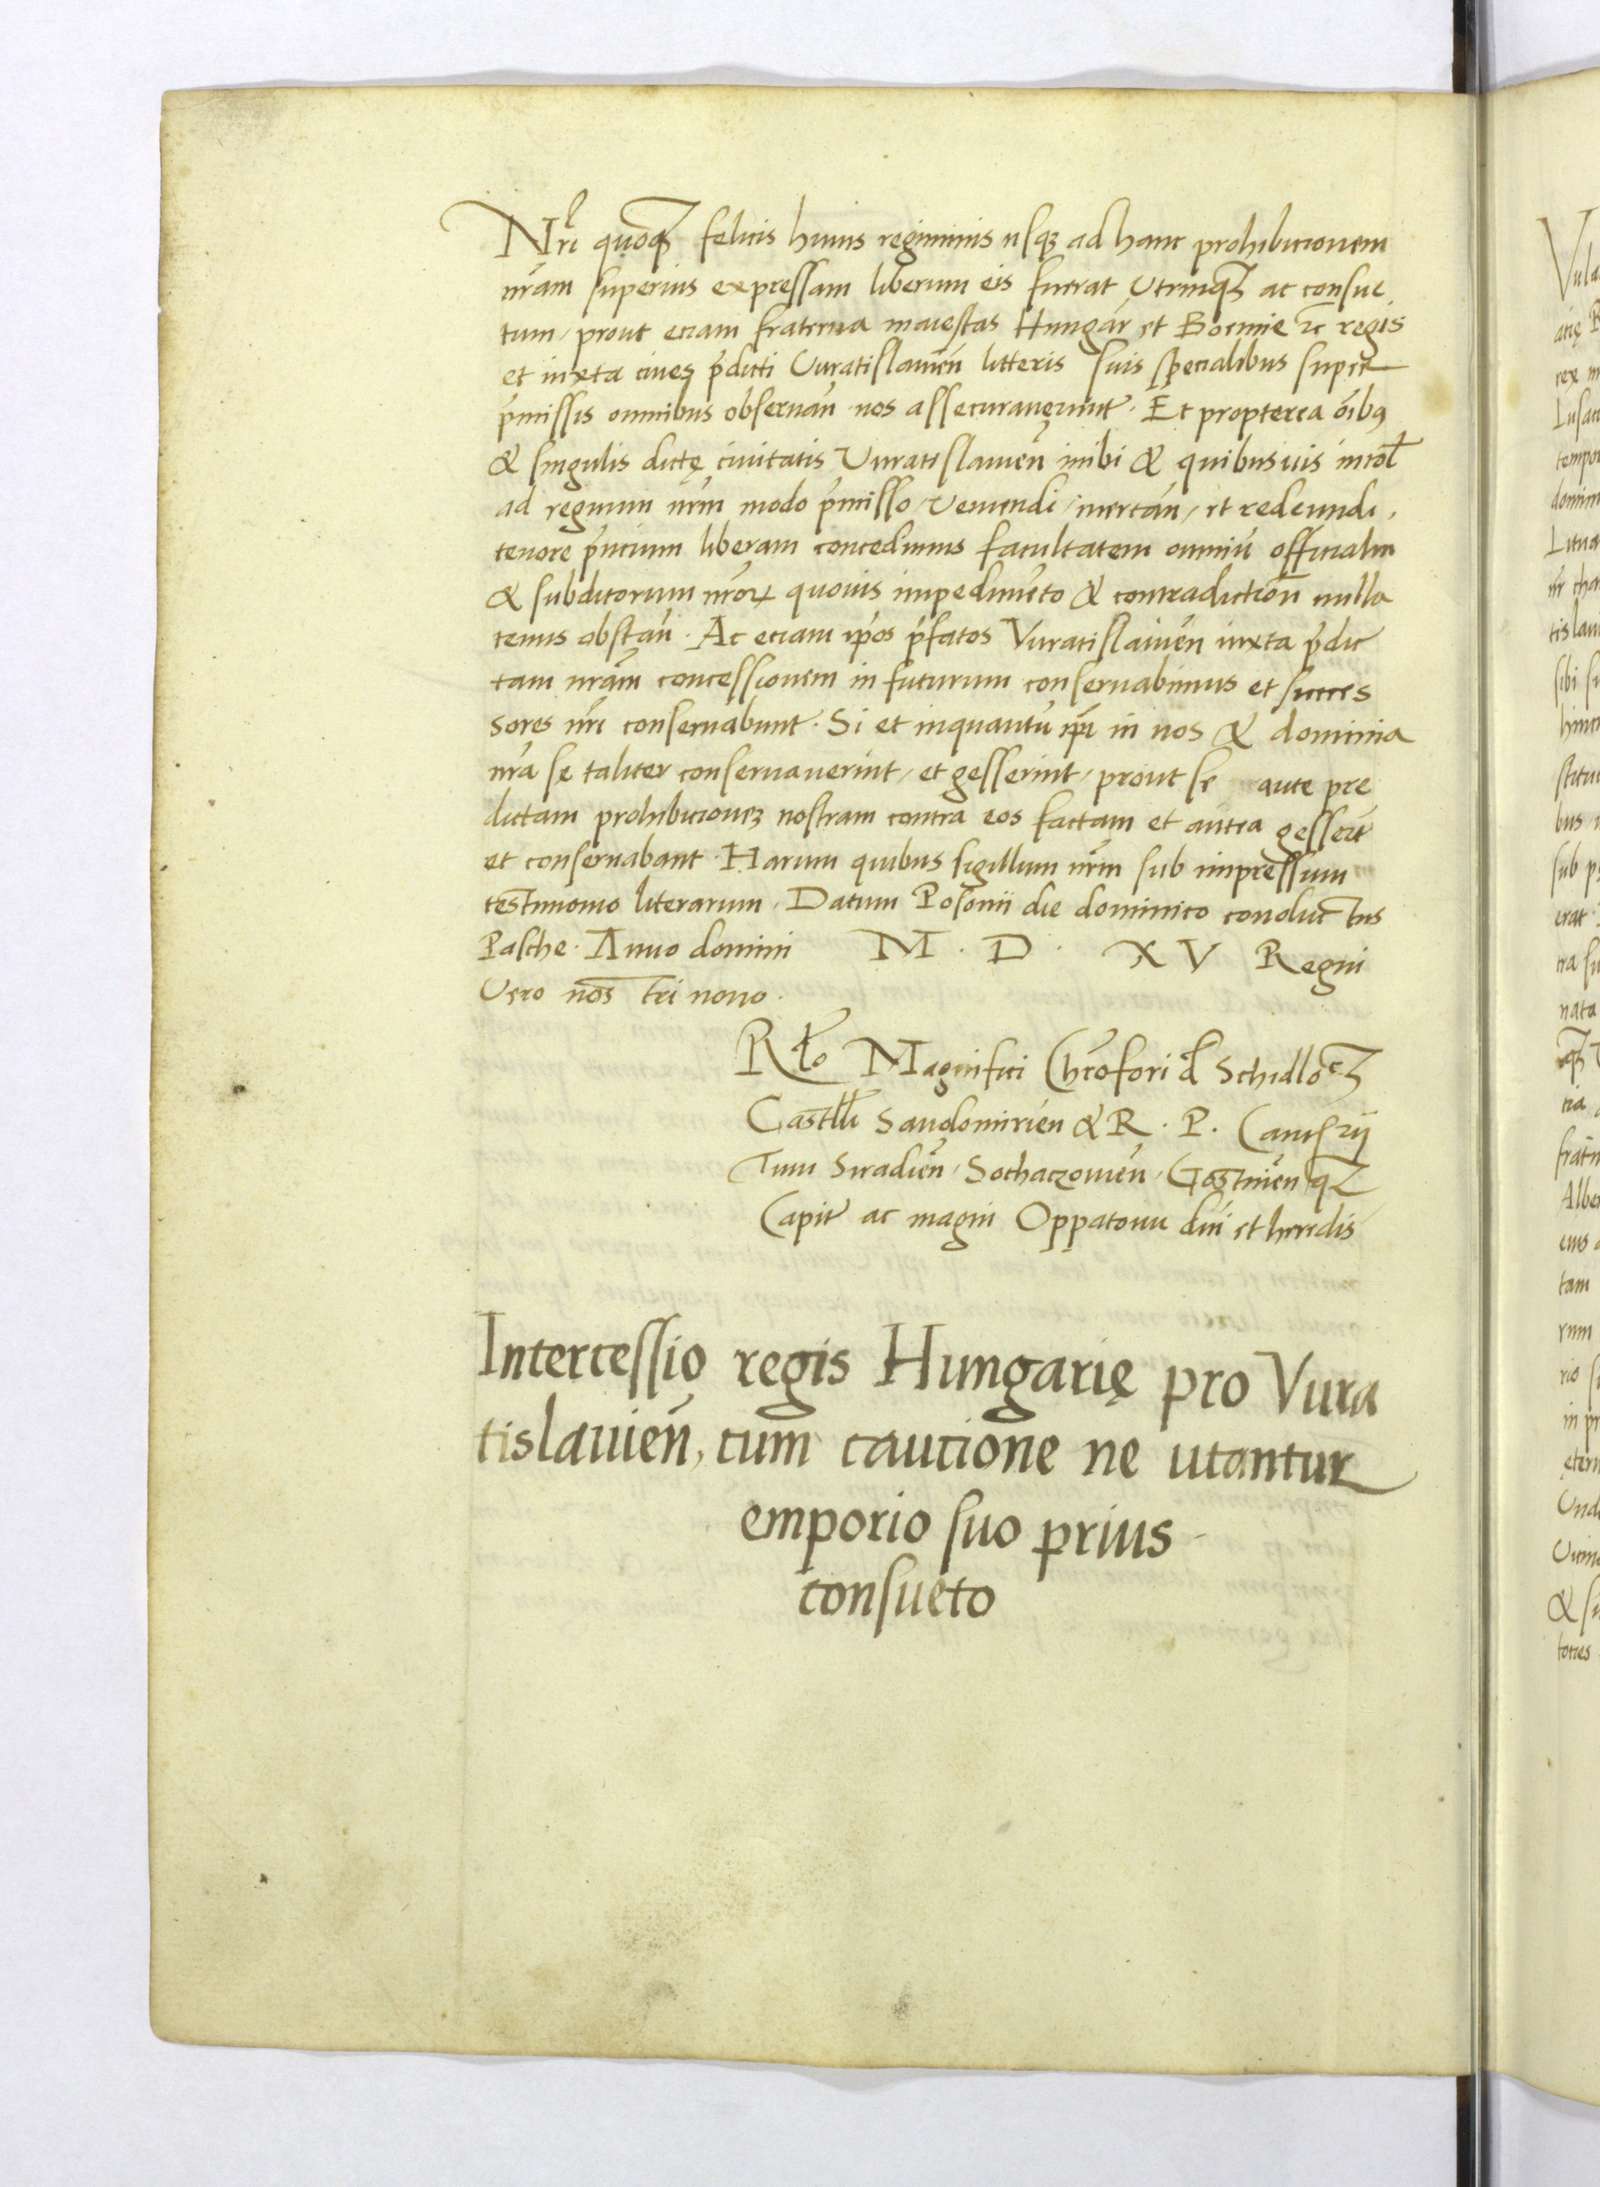 Nr̃i quoqꝫ felicis huius regiminis usqꝫ ad hanc prohibicionem
nr̃am superius expressam liberum eis fuerat Utrinqꝫ ac consue
tum, prout eciam fraterna maiestas Hungar̃ et Boemie ꝛc regis
et iuxta ciues p̃dicti Vuratislauien̄ litteris suis specialibus super
p̃missis omnibus obseruan̄ nos assecurauerunt. Et propterea oĩbꝯ
& singulis dictę ciuitatis Vuratislauien̄ inibi & quibusuis incol̄
ad regnum nr̃m modo p̃misso, Veniendi, mercan̄, et redeundi,
tenore p̃ncium liberam concedimus facultatem omniũ officialiũ
& subditorum nr̃orꝝ quouis impedimẽto & contradiction̄ nulla
tenus obstan̄. Ac eciam ip̃os p̃fatos Vuratislauien̄ iuxta p̃dic
tam nr̃am concessionem in futurum conseruabimus et succes
sores nr̃i conseruabunt. Si et inquantũ ip̃i in nos & dominia
nr̃a se taliter conseruauerint, et gesserint, prout se ante pre
dictam prohibicionꝫ nostram contra eos factam et antea gesser̃t
et conseruabant. Harum quibus sigillum nr̃m sub impressum
testimonio literarum. Datum Posonii die dominico conductus
Pasche. Anno domini M. D. XV Regni
Vero nostri nono.
Rlo Magnifici Chr̃ofori d̄ Schidloͨꝫ
Castlĩ Sandomirien̄ & R. P. Cancrii
Tum Siradien̄, Sochaczouien̄, Gostinien̄ qꝫ
Capit̃ ac magni Oppatouu dñi et heredis
Intercessio regis Hungarię pro Vura
tislauien̄, cum caucione ne utantur
emporio suo prius
consueto